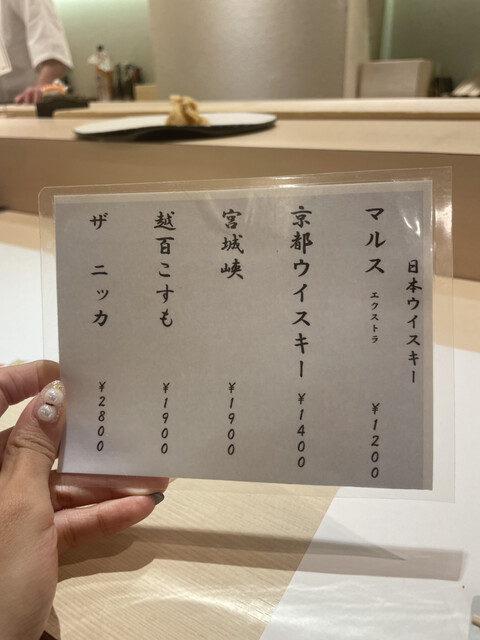 日本ウイスキー
マルス エクストラ ¥1200
京都ウイスキー ¥1400
宮城峡 ¥1900
越百こすも ¥1900
ザ ニッカ ¥2800